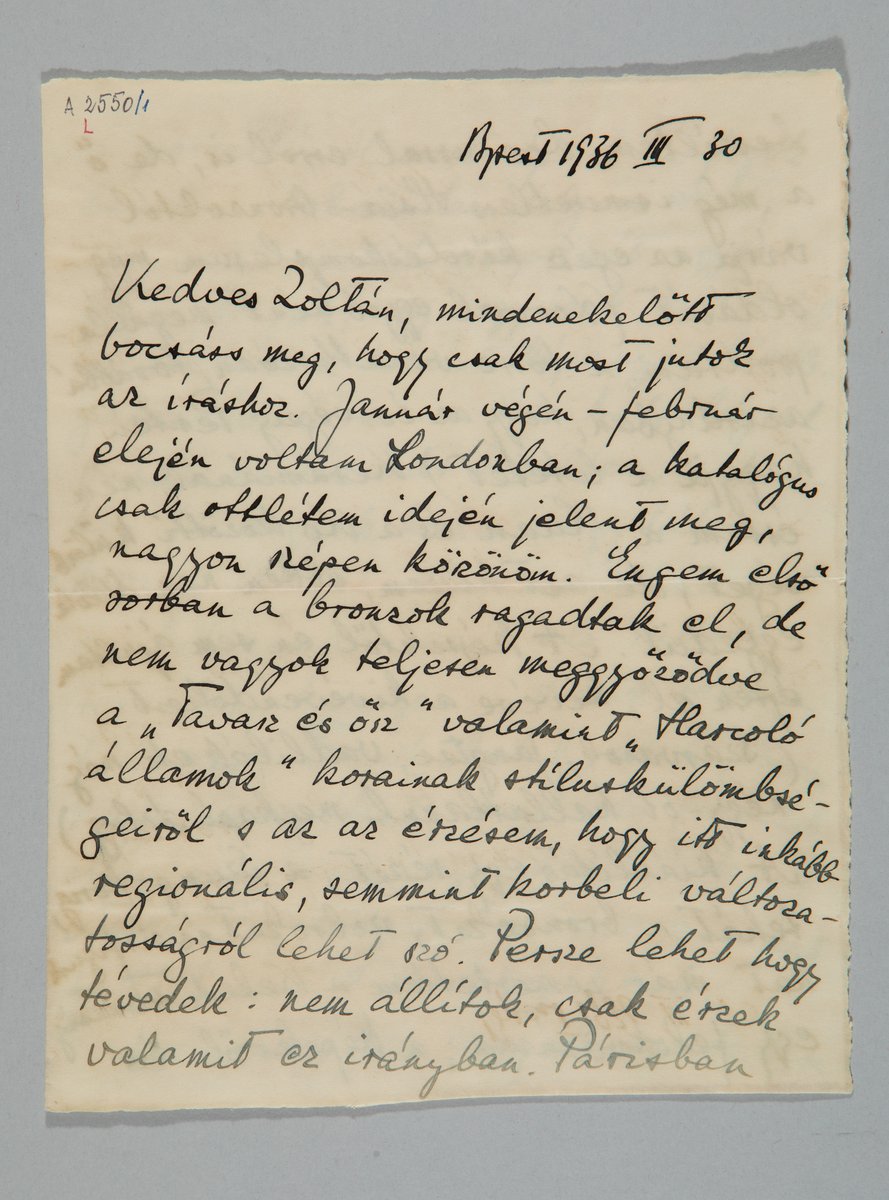 A 2550/1
L
Bpest 1936 III 30
Kedves Zoltán, mindenekelőtt
bocsáss meg, hogy csak most jutok
az íráshoz. Január végén – február
elején voltam Londonban; a katalógus
csak ottlétem idején jelent meg,
nagyon szépen közönöm. Engem első
sorban a bronzok ragadtak el, de
nem vagyok teljesen meggyőződve
a „Tavasz és ősz" valamint „Harcoló
államok" korainak stíluskülömbsé-
geiről s az az érzésem, hogy itt inkább
regionális, semmint korbeli változa-
tosságról lehet szó. Persze lehet hogy
tévedek : nem állítok, csak érzek
valamit ez irányban. Párisban